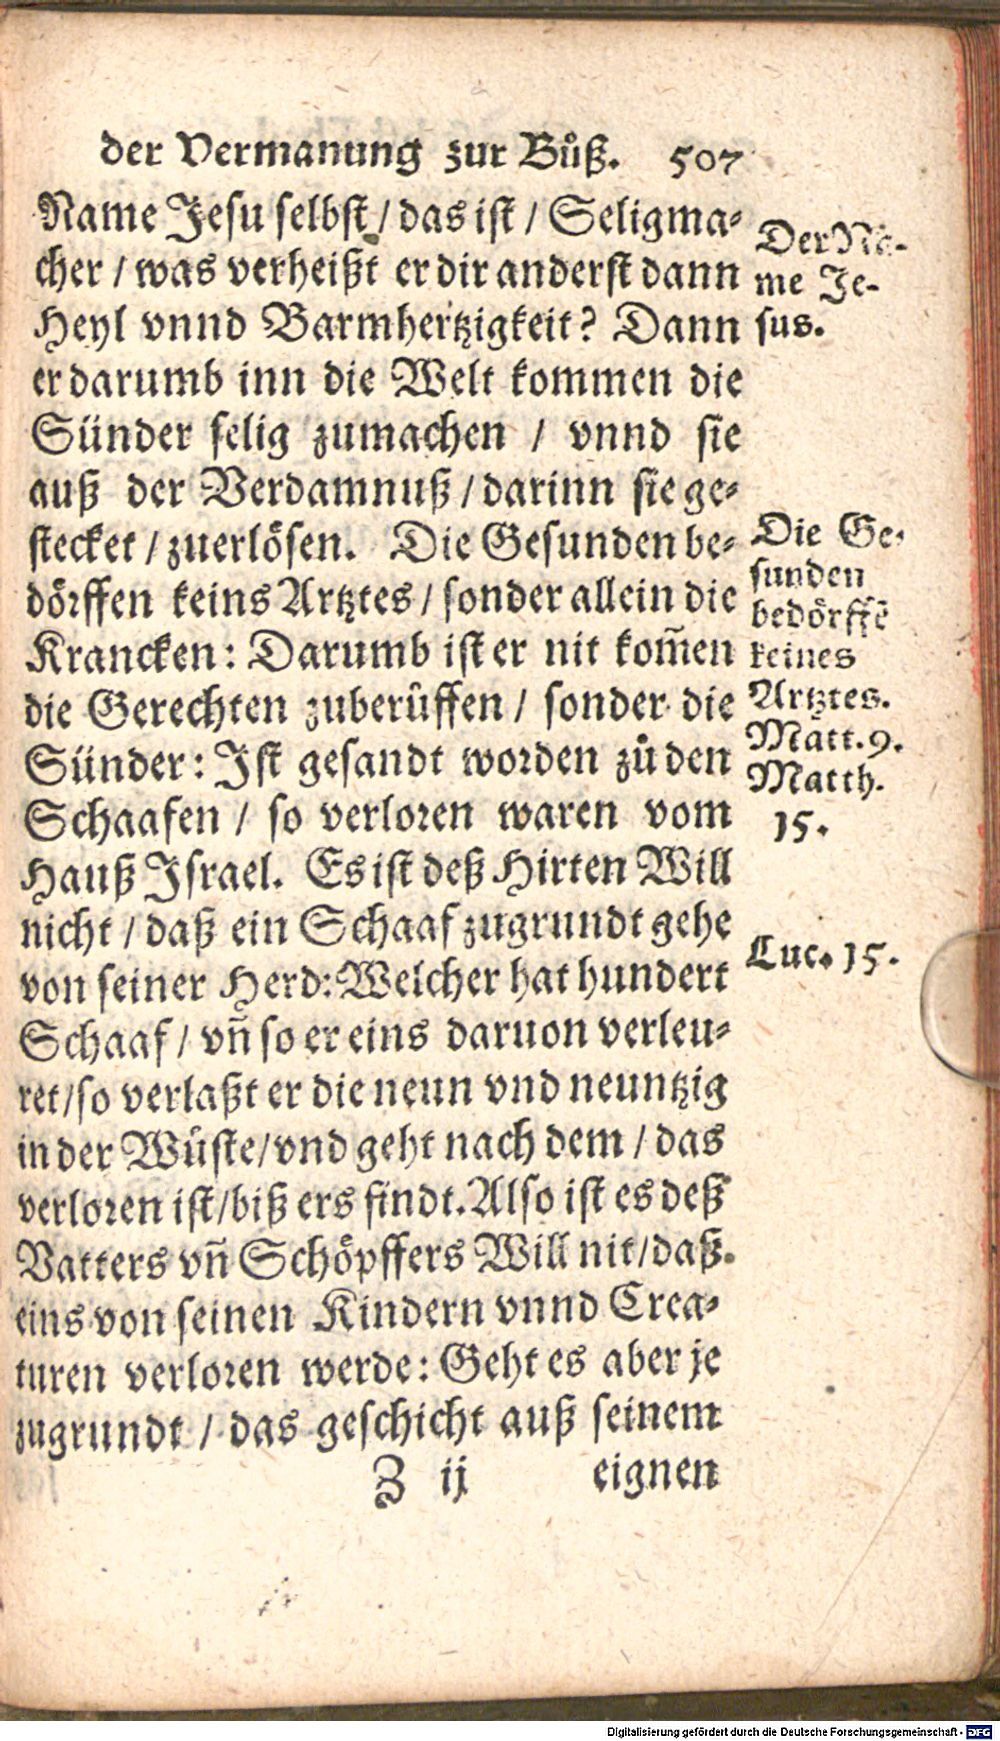 der Vermanung zur Bůß. 507
Name Jesu selbst / das ist / Seligma-
cher / was verheißt er dir anderst dann
Heyl vnnd Barmhertzigkeit? Dann
er darumb inn die Welt kommen die
Sünder selig zumachen / vnnd sie
auß der Verdamnuß / darinn sie ge-
stecket / zuerlösen. Die Gesunden be-
dörffen keins Artztes / sonder allein die
Krancken: Darumb ist er nit kom̄en
die Gerechten zuberůffen / sonder die
Sünder: Ist gesandt worden zů den
Schaafen / so verloren waren vom
Hauß Israel. Es ist deß Hirten Will
nicht / daß ein Schaaf zugrundt gehe
von seiner Herd: Welcher hat hundert
Schaaf / vn̄ so er eins daruon verleu-
ret / so verlaßt er die neun vnd neuntzig
in der Wůste / vnd geht nach dem / das
verloren ist / biß ers findt. Also ist es deß
Vatters vn̄ Schöpffers Will nit / daß
eins von seinen Kindern vnnd Crea-
turen verloren werde: Geht es aber je
zugrundt / das geschicht auß seinem
Z ij eignen
Der Na-
me Je-
sus.
Die Ge-
sunden
bedörffē
keines
Artztes.
Matt. 9.
Matth.
15.
Luc. 15.
Digitalisierung gefördert durch die Deutsche Forschungsgemeinschaft - DFG